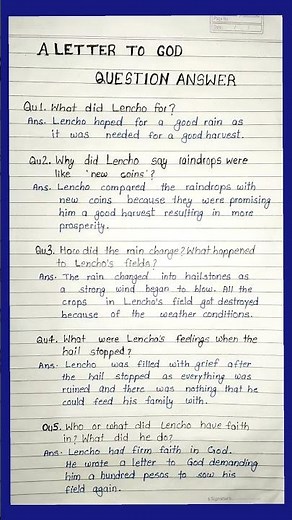 A LETTER TO GOD
QUESTION ANSWER
Qu1. What did Lencho for?
Ans. Lencho hoped for a good rain as
it was needed for a good harvest.
Qu2. Why did Lencho say raindrops were
like 'new coins'?
Ans. Lencho compared the raindrops with
new coins because they were promising
him a good harvest resulting in more
prosperity.
Qu3. How did the rain change? What happened
to Lencho's fields?
Ans. The rain changed into hailstones as
a strong wind began to blow. All the
crops in Lencho's field got destroyed
because of the weather conditions.
Qu4. What were Lencho's feelings when the
hail stopped?
Ans. Lencho was filled with grief after
the hail stopped as everything was
ruined and there was nothing that he
could feed his family with.
Qu5. Who or what did Lencho have faith
in? What did he do?
Ans. Lencho had firm faith in God.
He wrote a letter to God demanding
him a hundred pesos to sow his
field again.